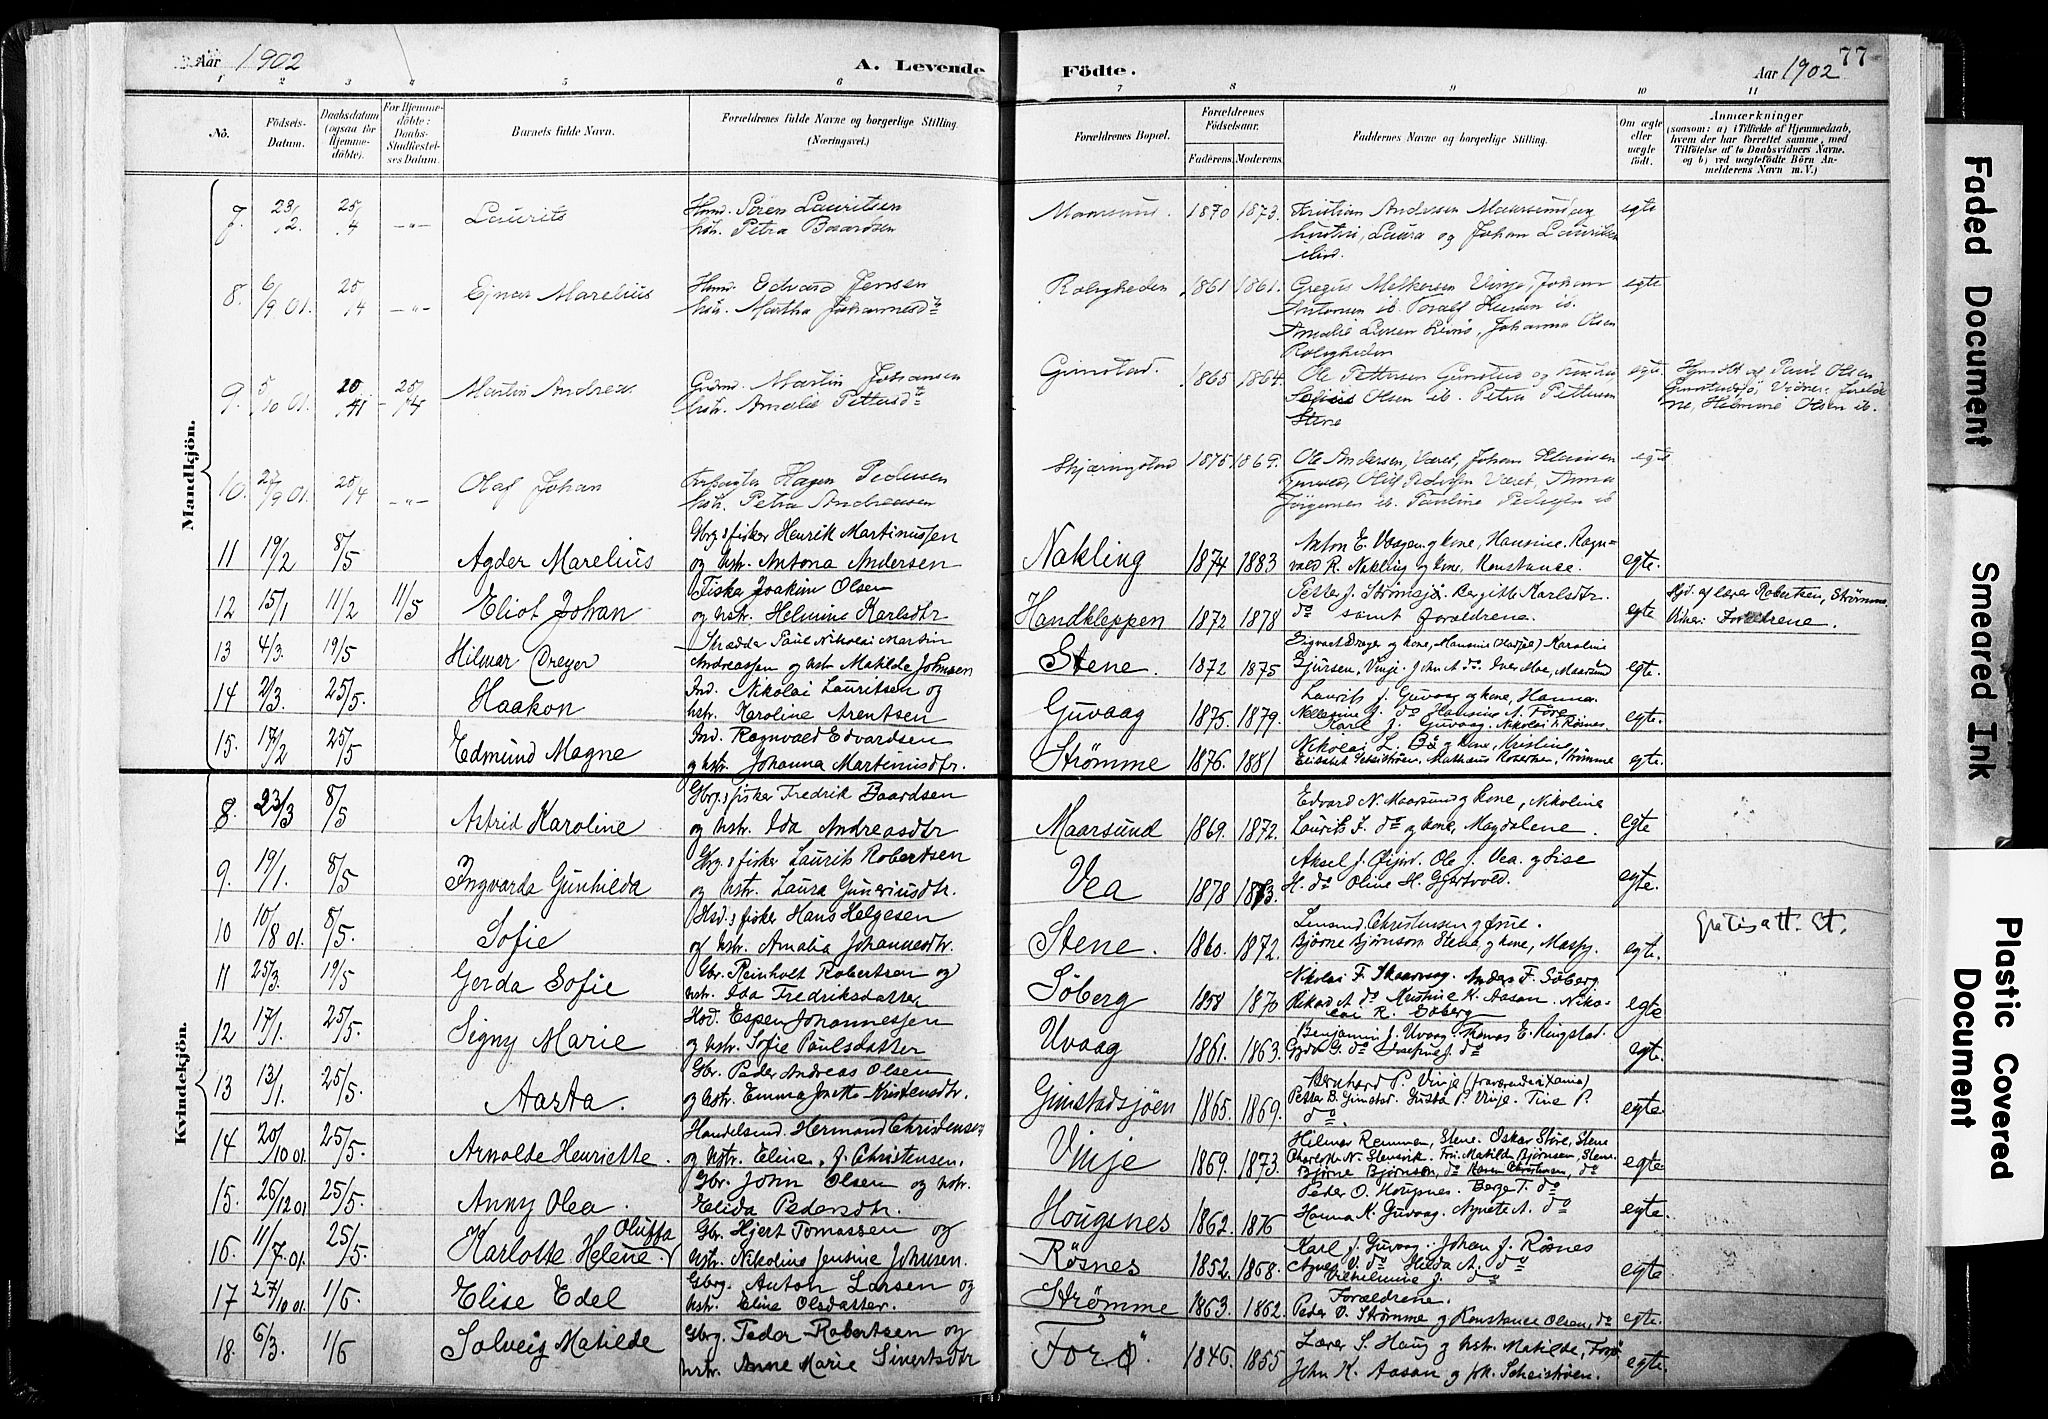 Aar 1902
A. Levende Födte.
77
Aar 1902
1 2 3 4 5 6 7 8 9 10 11
No.
Födsels-Datum.
Daabsdatum (ogsaa for Hjemmedöbte).
For Hjemmedöbte: Daabs-Stadfæstelses Datum.
Barnets fulde Navn.
Forældrenes fulde Navne og borgerlige Stilling (Næringsvei).
Forældrenes Bopæl.
Forældrenes Födselsaar.
Faderens. Moderens.
Faddernes Navne og borgerlige Stilling.
Om ægte eller uægte födt.
Anmærkninger
(saasom: a) i Tilfælde af Hjemmedaab, hvem der har forrettet samme, med Tilföielse af to Daabsvidners Navne. og b) ved uægtefödte Börn Anmelderens Navn m. V.)
Mandkjön.
7. 23/2. 25/4 -"- Laurits
Søren Lauritsen
hstr. Petra Baardsen
Maarsund. 1870 1873.
Kristian Andersen Maarsund og
hustru, Laura og Johan Lauritsen
egte
8. 6/9 01. 25/4 -"- Ejnar Marelius
Edvard Jensen
hstr. Martha Johannesdtr
Roligheden 1861 1861.
Gregus Melkersen Vinje, Johan
Antonsen ib.
Johanna Olsen
Roligheden
egte
9. 5/10 01. 25/4 Martin Andreas
Martin Johansen
hstr. Amalie Pettersdtr
Gimstad. 1865 1864.
Ole Pettersen Gimstad og
Olsen ib. Petra Pettersen
Stene
egte
af Paul Olsen
Gimstadsjø, Vidner: foreldrene, Helmine Olsen ib.
10. 27/9 01. 25/4 -"- Olaf Johan
Forpagter Hagen Pedersen
hstr. Petra Andreassen
Skjæringstad 1875 1869.
Ole Andersen, Været, Johan
Været, Anna
Jörgensen ib. Pauline Pedersen ib
egte
11 19/2 8/5 Agder Marelius
Gbrg. & fisker Henrik Martinussen
og hstr. Antona Andersen
Nökling 1874 1883
Anton E. Vaagen og kone, Hansine. Ragn=
vald R. Nökling og kone, Konstance.
egte.
12 15/1 11/2 11/5 Eliot Johan
Fisker Joakim Olsen
og hstr. Helmine Karlsdtr
Handkleppen 1872 1878
Petter J. Strömsjø. Bergitte Karlsdtr.
do samt forældrene.
egte
Hjd. af lærer Robertsen, Strömme
Vidner: Forældrene.
13 4/3. 19/5 Hilmar Dreyer
Skrædder Paul Nikolai Martin
Andreassen og hstr Matilde Johnsen
Stene 1872 1875
Sigvart Dreyer og kone, Karoline
Sjursen, Vinje. John A do. Iver Moe, Maarsund
egte.
14 2/3. 25/5. Haakon
Ind. Nikolai Lauritsen og
hstr. Karoline Arentsen
Guvaag 1875. 1879.
Laurits J. Guvaag og kone, Hanna
do Hansine A. Före
Karl J. Guvaag. Nikolai Rösnes.
egte.
15. 17/2 25/5 Edmund Magne
Ind. Ragnvald Edvardsen
og hstr. Johanna Martinusdtr.
Strömme 1876. 1881
Nikolai L. Bö og kone, Kristine
Strömme
egte.
Kvindekjön.
8. 23/3 8/5 Astrid Karoline
Gbrg. & fisker Fredrik Baardsen
og hstr. Ida Andreasdtr
Maarsund 1869. 1872.
Edvard N. Maarsund og kone, Nikoline
Laurits J. do og kone, Magdalene.
egte
9. 19/1. 8/5 Ingvarda Gunhilda
Gbrg. & fisker Laurits Robertsen
og hstr. Laura Guneriusdtr.
Vea 1878 1873.
Aksel J. Öijord. Ole J. Vea. og Lise
H. do Oline H. Gjertvold.
egte.
10 10/8 01. 8/5. Sofie
Hsd. & fisker Hans Helgesen
og hstr. Amalia Johannesdtr.
Stene. 1860. 1872.
Christensen og frue.
Bjørne Bjørnson Stene, og kone,
egte.
Gratis att. St.
11 25/3. 19/5 Gerda Sofie
Gbr. Reinholt Robertsen og
hstr. Ida Fredriksdatter
Söberg 1858 1870
Nikolai F. Skaarvaag. Anders F. Söberg.
Rikad A do Kristine K. Aasan. Niko-
lai R. Söberg
egte
12 17/1. 25/5. Signy Marie
Hsd. Espen Johannessen
og hstr. Sofie Paulsdatter
Uvaag 1861. 1863.
Benjamin J. Uvaag. Thomas E. Ringstad.
Gyda G. do Josefine J. do
egte.
13 13/1. 25/5. Aasta.
Gbr. Peder Andreas Olsen
og hstr. Emma Jonette Kristensdtr.
Gimstadsjöen 1865. 1869.
Bernhard P. Vinje
Petra B. Gimstad. Gusta P. Vinje. Tine P.
do.
egte.
14 20/10 01. 25/5. Arnolde Henriette.
Handelsmd. Hermand Christensen
og hstr. Eline. J. Christensen.
Vinje 1869. 1873.
Hilmar Remmen, Stene. Oskar Störe, Stene
Charlotte N. Stensvik. Frk. Matilde Bjørnsen, Stene.
Bjørne Bjørnson, do Karen Christensen, do
egte
15. 26/12 01 25/5. Anny Olea.
Gbr. John Olsen og hstr.
Elida Pedersdtr.
Hougsnes 1862. 1876
Peder O. Hougsnes. Berge T. do
Hanna K. Guvaag. Agnete A. do
egte.
16. 11/7. 01. 25/5. Karlotte Helene Oluffa
Gbr. Hjert Tomassen og
hstr. Nikoline Jentine Johnsen.
Rösnes 1852. 1868.
Karl J. Guvaag. Johan J. Rösnes
Agnes V. do Hilda A. do
Vilhelmine J. do
egte
17 27/10 01 1/6. Elise Edel
Gbrg. Anton Larsen og
hstr. Eline Olsdatter.
Strömme 1863. 1862.
Forældrene.
Peder O. Strömme og Konstance Olsen, do
egte.
18. 6/3. 1/6 Solveig Matilde
Gbrg. Peder Robertsen og
hstr. Anne Marie Sivertsdtr
Forö 1846. 1855
Lærer S. Haug og hstr. Matilde, Forö
John K. Aasan og frk. Scheistrøen.
egte.
Faded Document
Smeared Ink
Plastic Covered Document